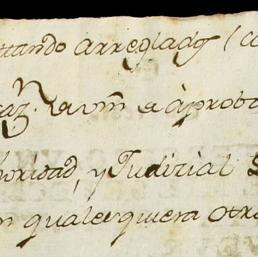 ttando arreglads (co
raz.n la vm e àproba
thoridad, y Judicial D
n qualesquiera otra